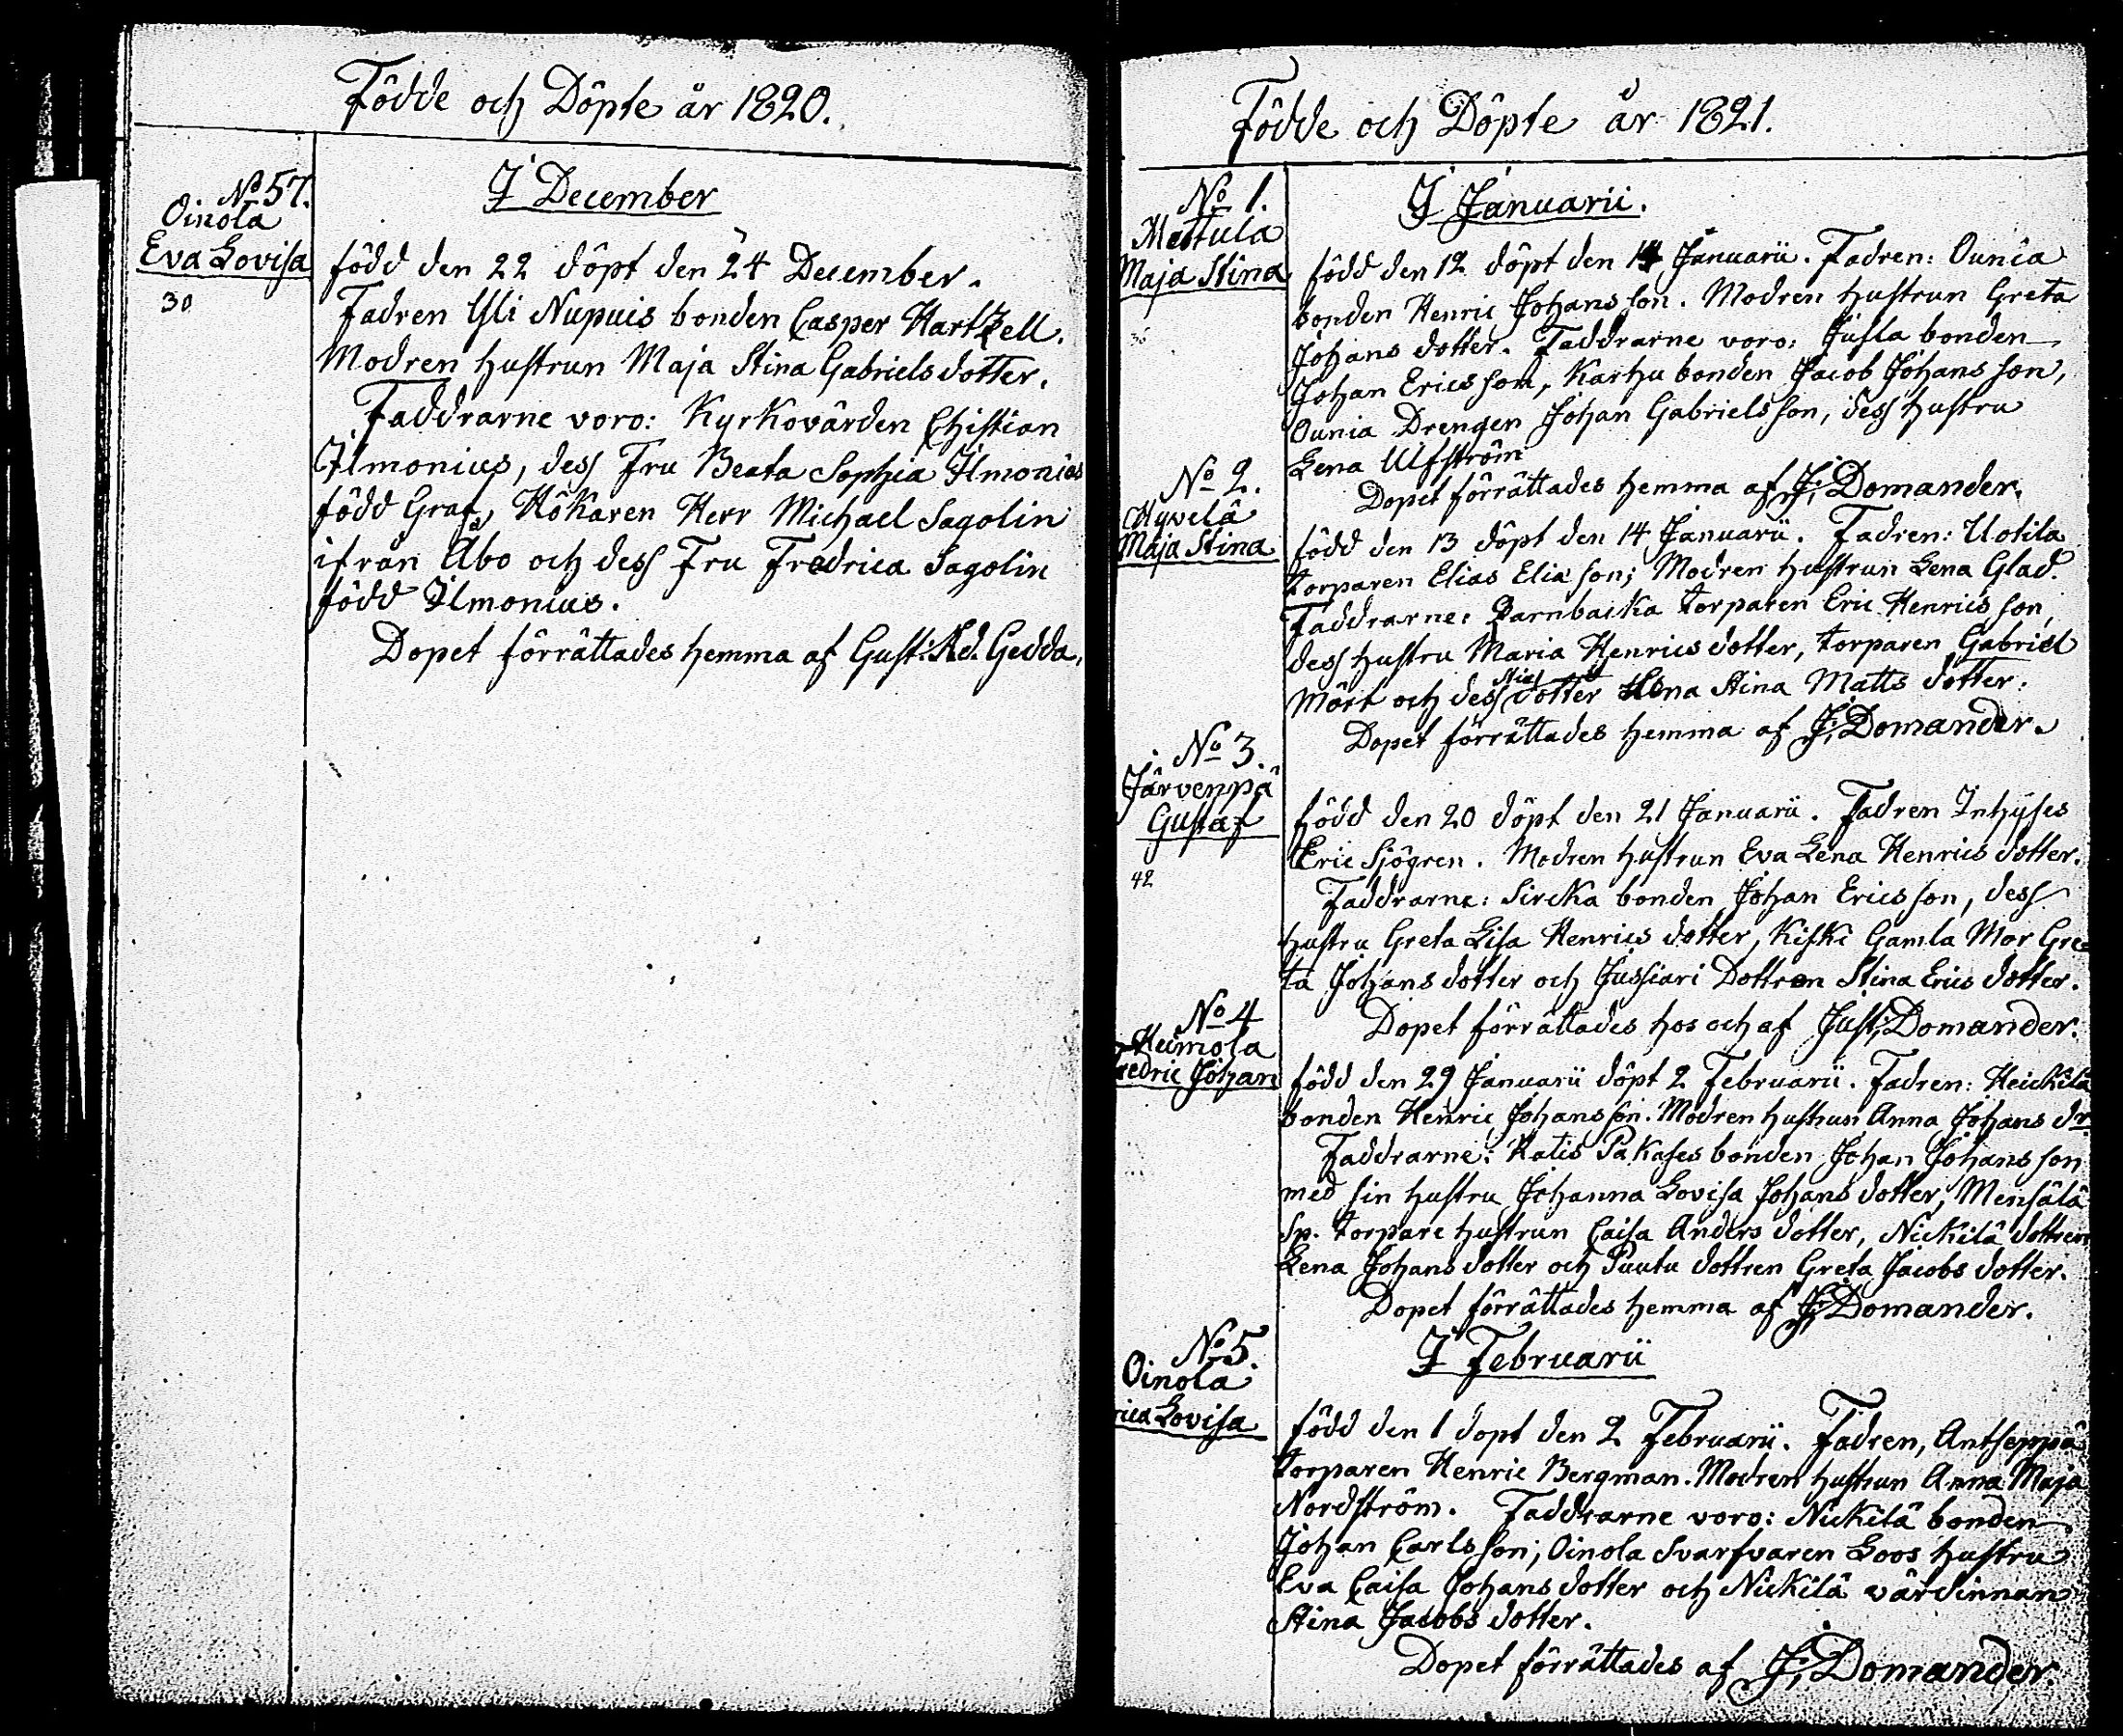 Födde och Döpte år 1820.
No 57.
Oinola
Eva Lovisa
30
I December
född den 22 döpt den 24 December.
Fadren Yli Nupuis bonden Casper Hartzell.
Modren hustrun Maja Stina Gabrielsdotter.
Faddrarne voro: Kyrkovärden Chistian
Ilmonius, dess Fru Beata Sophia Ilmonius
född Graf, Hökaren Herr Michael Sagolin
ifrån Åbo och dess Fru Fredrica Sagolin
född Ilmonius.
Dopet förrättades hemma af Gust: Ad. Gedda.
Födde och Döpte år 1821.
No 1.
Mattula
Maja Stina
36
I Januarii.
född den 12 döpt den 14 Januarii. Fadren: Ounia
bonden Henric Johansson. Modren hustrun Greta
Johans dotter. Faddrarne voro: Jusla bonden
Johan Ericsson, Karhu bonden Jacob Johansson,
Ounia Drengen Johan Gabrielsson, dess hustru
Lena Ulfström
Dopet förrättades hemma af J: Domander.
No 2.
Hyvelä
Maja Stina
född den 13 döpt den 14 Januarii. Fadren: Uotila
torparen Elias Eliasson; Modren hustrun Lena Glad.
Faddrarne: Parnbacka torparen Eric Henricsson,
dess hustru Maria Henricsdotter, torparen Gabriel
Mört och dess dotter Lena Stina Matts dotter.
Dopet förrättades hemma af J: Domander.
No 3.
Järvenpä
Gustaf
42
född den 20 döpt den 21 Januarii. Fadren Inhyses
Eric Sjögren. Modren hustrun Eva Lena Henrics dotter.
Faddrarne: Sircka bonden Johan Ericsson, dess
hustru Greta Lisa Henrics dotter, Kiski Gamla Mor Gre=
ta Johans dotter och Jussiari Dottren Stina Erics dotter.
Dopet förrättades hos och af Just: Domander.
No 4
Heimola
redric Johan
född den 29 Januarii döpt 2 Februarii. Fadren: Heickilä
bonden Henric Johansson. Modren hustrun Anna Johans dr
Faddrarne: Ratis Pakases bonden Johan Johansson
med sin hustru Johanna Lovisa Johans dotter, Mensälä
Sp. torpare hustrun Caisa Anders dotter, Nickilä dottren
Lena Johans dotter och Puutu dottren Greta Jacobs dotter.
Dopet förrättades hemma af J: Domander.
No 5.
Oinola
rica Lovisa
I Februarii
född den 1 dopt den 2 Februarii. Fadren, Antseppä
torparen Henric Bergman. Modren hustrun Anna Maja
Nordström. Faddrarne voro: Nickilä bonden
Johan Carlsson; Oinola Svarfvaren Loos hustru
Eva Caisa Johans dotter och Nickilä värdinnan
Stina Jacobs dotter.
Dopet förrättades af J: Domander.